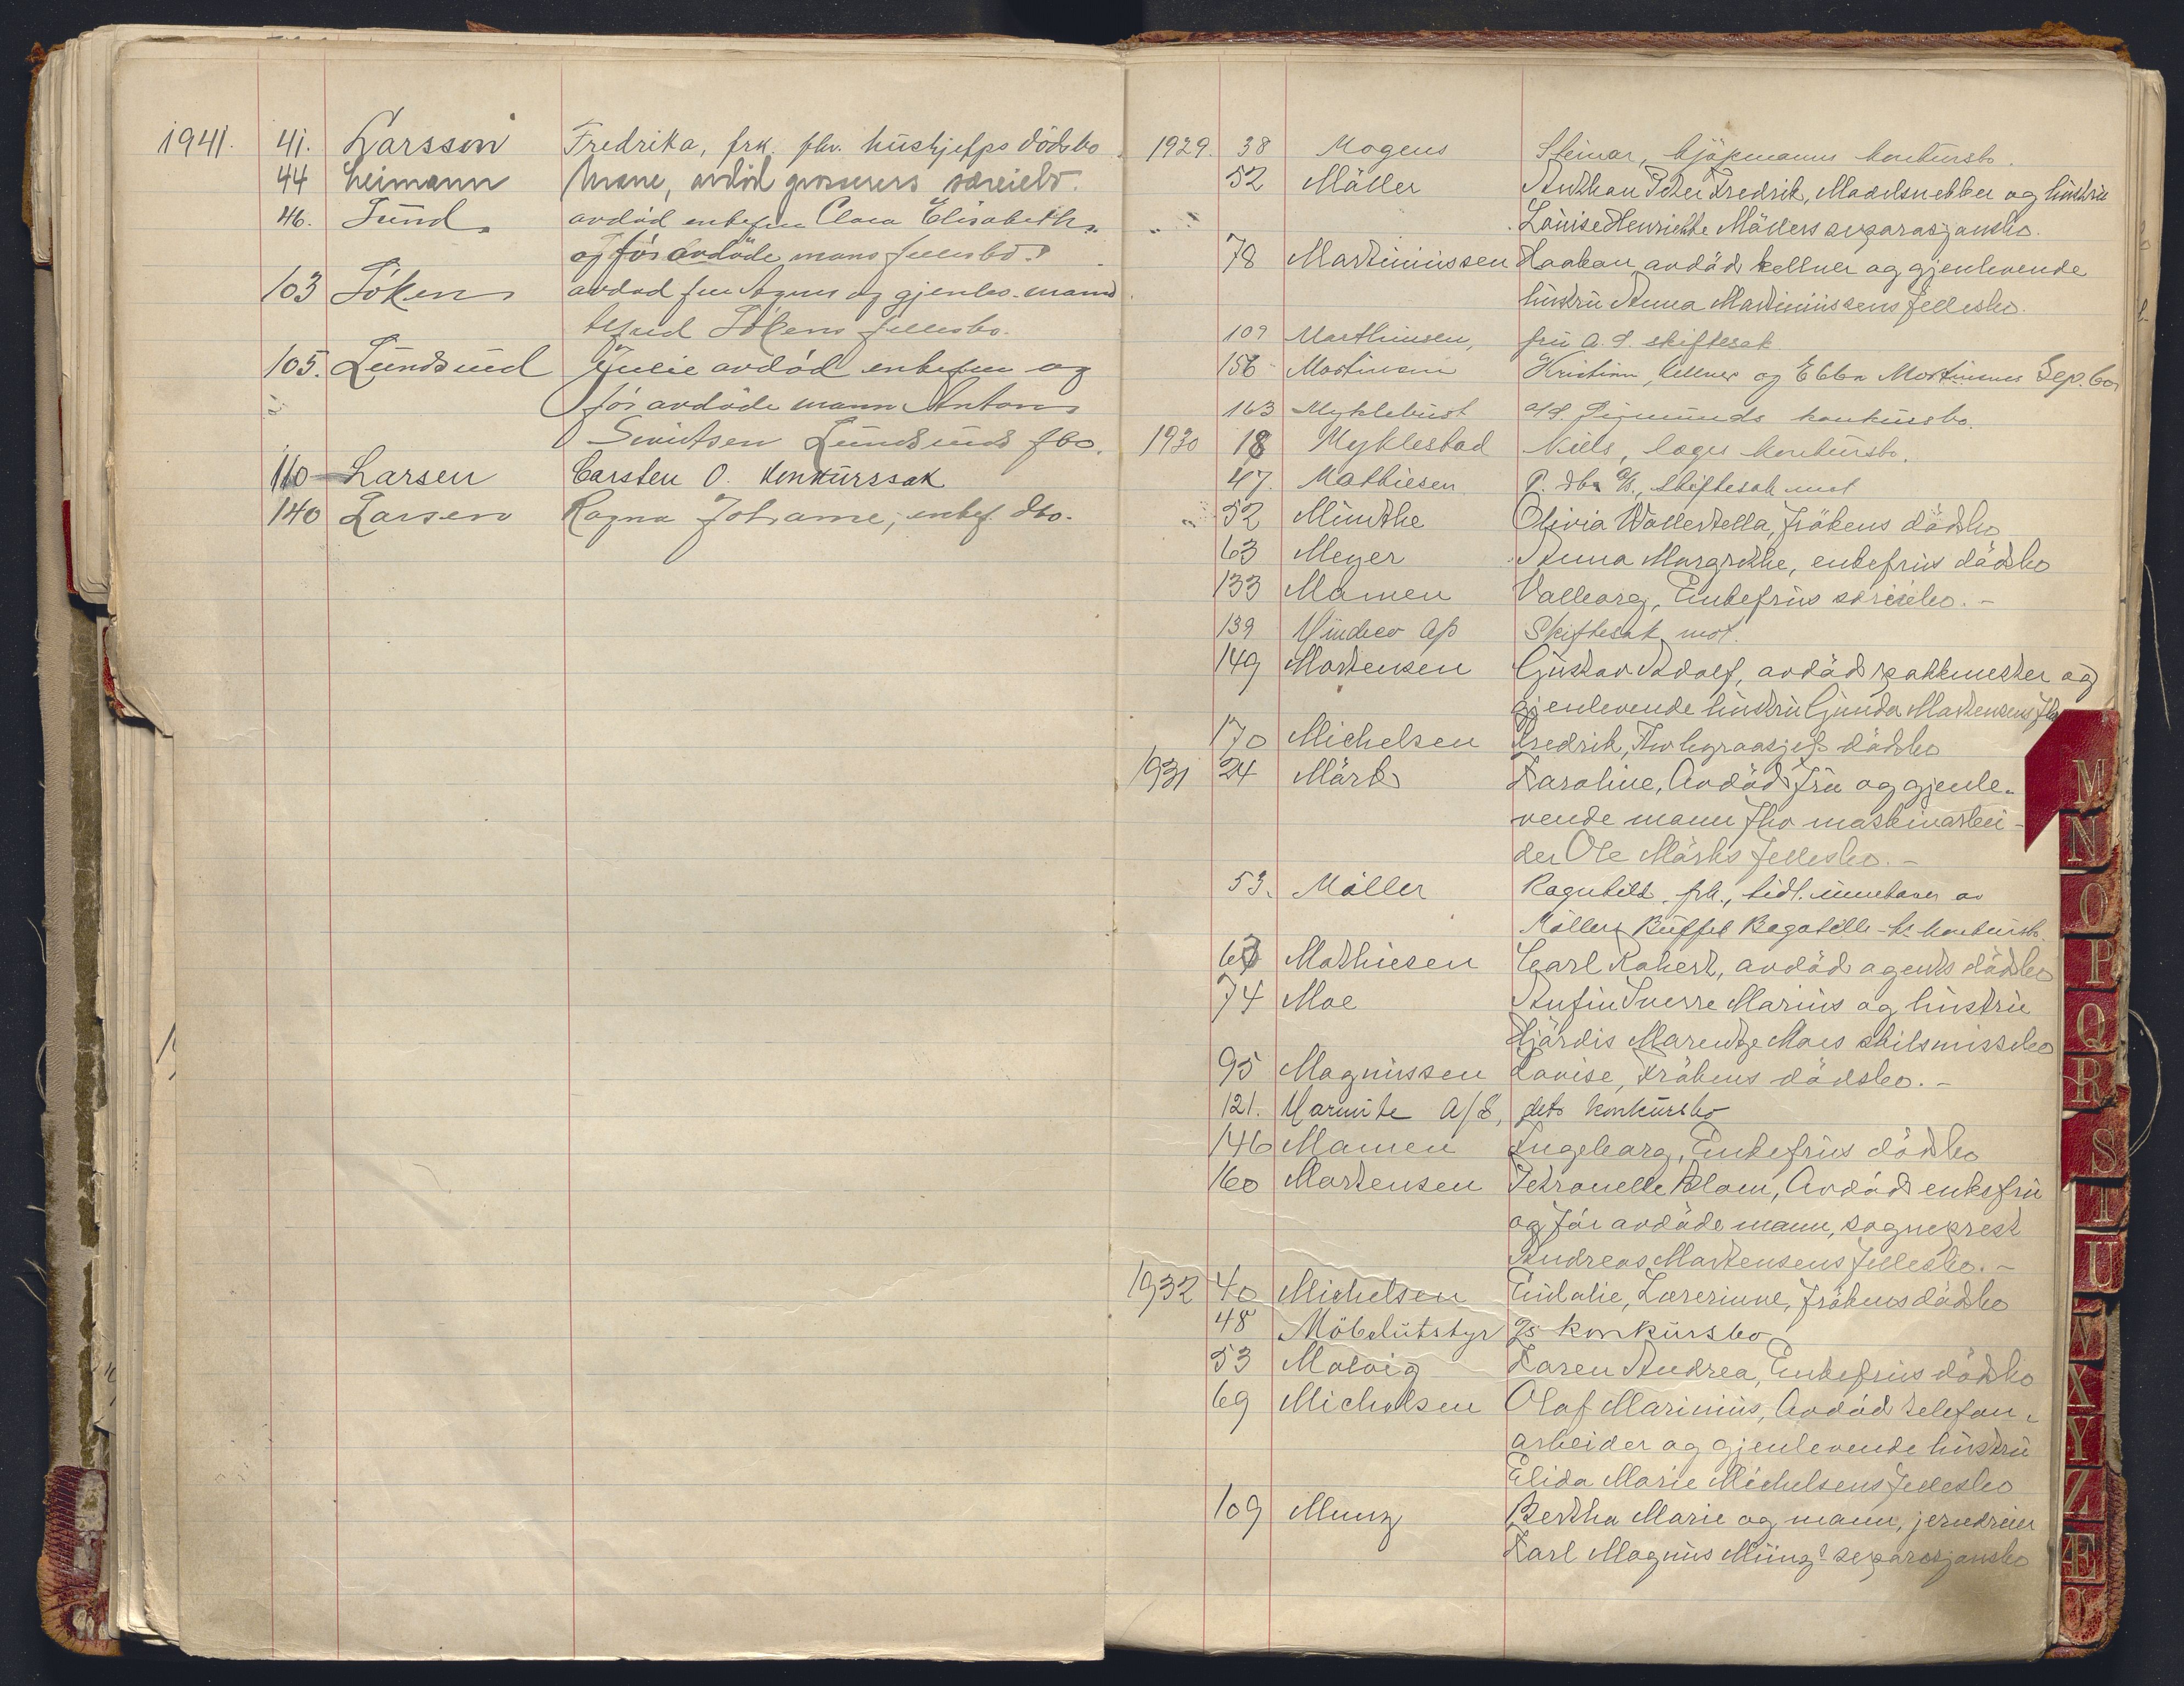 1941. 41. Larsson Fredrika, frk. fhv. hushjelps dödsbo
44 Leimann Mane, avdöd grosserers særeiebo.
46. Lund avdöd enkefru Clara Elisabeth
og før avdøde manns fellesbo
103 Löken avdöd fru Agnes og gjenlev. mann
Alfred Lökens fellesbo.
105. Lundsund Julie avdöd enkefru og
för avdöde mann Antons
Sivertsen Lundsunds fbo.
110 Larsen Carsten O. konkurssak
140 Larsen Ragna Johanne, enkef. dbo.
1929. 38 Mogens Steinar, kjöpmanns konkursbo.
52 Möller Anthon Peter Fredrik, Modelsnekker og hustru
Louise Henriette Möllers separasjonsbo.
78 Martiniussen Haakon, avdöd kellner og gjenlevende
hustru Anna Martiniussens fellesbo.
109 Marthinsen, fru A. S. skiftesak
156 Martinsen Kristian, kellner og Ebba Martinsens Sep. bo
163 Myklebust Sigmunds konkursbo.
1930 18 Myklestad Niels, lages konkursbo.
47. Mathiesen P. dbo A/S., skiftesak mot
52 Münthe Olivia Wallestella, frökens dödsbo
63 Meyer Anna Margrethe, enkefrus dödsbo
133 Mamen Valborg, Enkefrus særeiebo. -
139 Mindeco A/S Skiftesak mot.
149 Mortensen Gustav Adolf, avdöd pakkmester og
gjenlevende hustru Gunda Mortensens fbo
170 Michelsen Fredrik, Fhv byraasjefs dödsbo
1931 24 Mörk Karoline, Avdöd fru og gjenle-
vende mann fhv maskinarbei-
der Ole Mörks fellesbo. -
53. Möller Ragnhild, frk., tidl. innehaver av
Möllers Buffet Bagatelle - konkursbo.
63 Mathiesen Carl Robert, avdöd agents dödsbo
74 Moe Anfin Sverre Marius og hustru
Hjördis Marentze Moes skilsmissebo
95 Magnussen Lovise, Frökens dödsbo. -
121. Marmite A/S, dets konkursbo
146 Mamen Ingeborg, Enkefrus dödsbo
160 Mortensen Petronelle Blom, Avdöd enkefru
og för avdöde mann, sogneprest
Andreas Mortensens fellesbo. -
1932 40 Michelsen Eulalie, Lærerinne, frökens dödsbo
48 Möbelutstyr A/S konkursbo
53 Malvig Karen Andrea, Enkefrus dödsbo
69 Michelsen Olaf Marinius, Avdöd telefon-
arbeider og gjenlevende hustru
Elida Marie Michelsens fellesbo
109 Munz Bertha Marie og mann, jerndreier
Karl Magnus Münz' separasjonsbo
M
N
O
P
Q
R
S
T
U
V
X
Y
Z
Æ
Ö